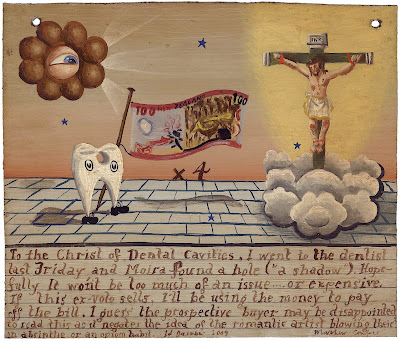 INRI
100 NEW ZEALAND 100
x 4
To the Christ of Dental Cavities. I went to the dentist
last Friday and Moira found a hole ('a shadow'). Hope-
fully. It won't be too much of an issue.....or expensive.
If this ex-voto sells. I'll be using the money to pay
off the bill. I guess the prospective buyer may be disappointed
to read this as it negates the idea of the romantic artist blowing their $
on absinthe or an opium habit. 2009